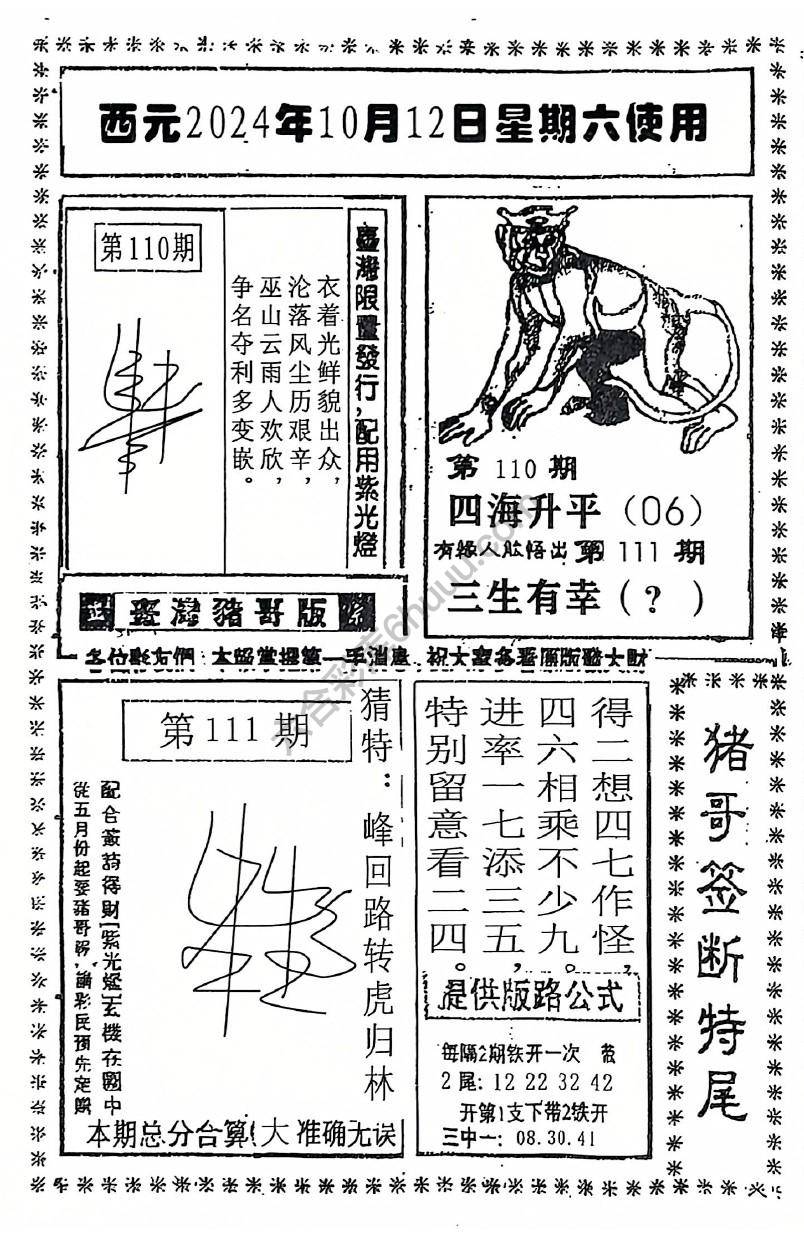 西元2024年10月12日星期六使用
臺灣限量發行,配用紫光燈
衣着光鲜貌出众,
沦落风尘历艰辛,
巫山云雨人欢欣,
争名夺利多变嵌。
第110期
第 110 期
四海升平（06）
有緣人能悟出 第 111 期
三生有幸（?）
臺灣豬哥版
各位彩友們:本版掌握第一手消息.祝大家各看原版發大財
猜特: 峰回路转虎归林
第 111 期
配合簽詩得財!紫光燈玄機在國中
從五月份起要豬哥務,請彩民預先定購
本期总分合算(大 准确无误
得二想四七作怪,
四六相乘不少九。
进率一七添三五,
特别留意看二四。
提供版路公式
每隔2期铁开一次
2尾: 12 22 32 42
开第1支下带2铁开
三中一: 08.30.41
猪哥签断特尾
六合彩库6huuu.com